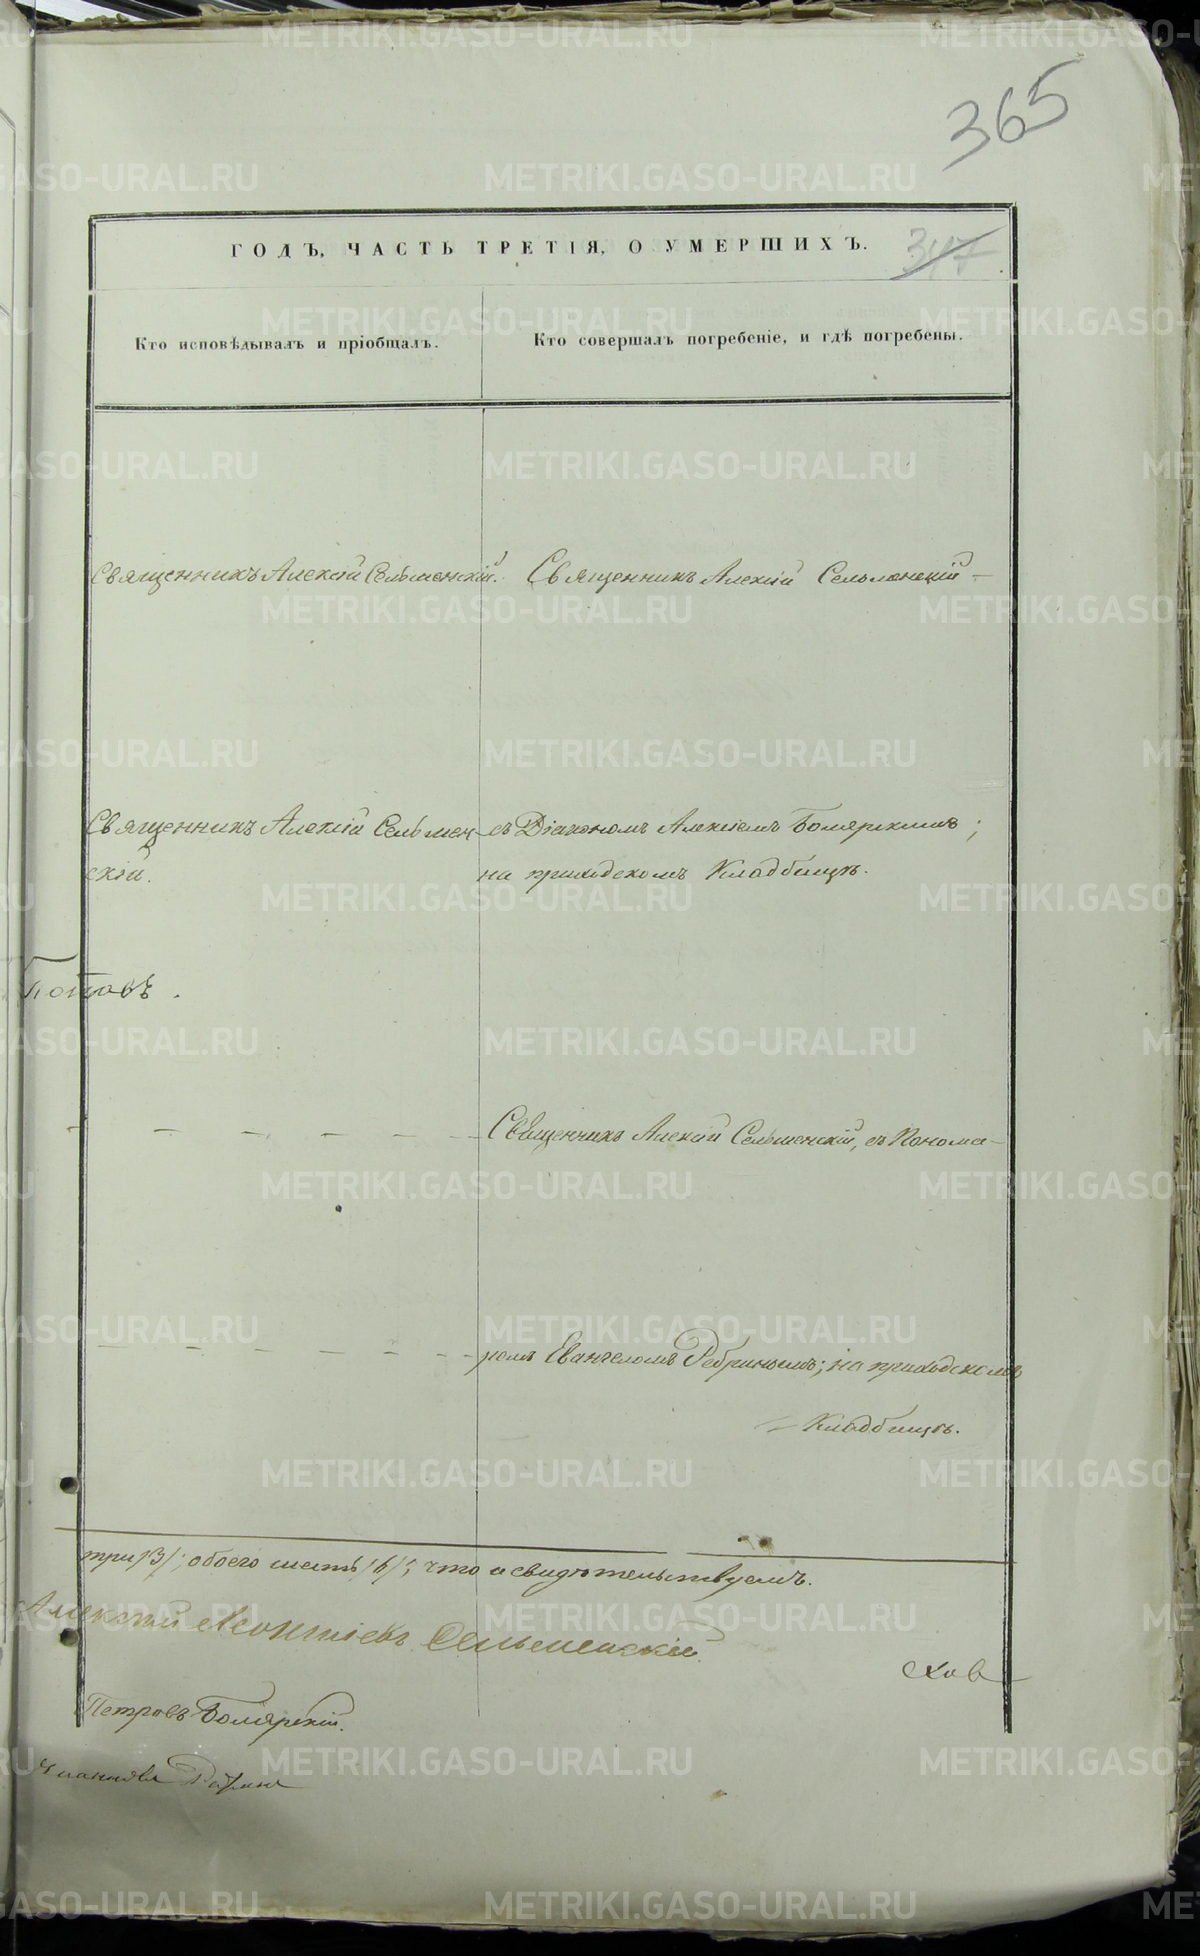 365
ГОДЪ, ЧАСТЬ ТРЕТІЯ, О УМЕРШИХЪ.
347
Кто исповѣдывалъ и пріобщалъ.
Кто совершалъ погребеніе, и гдѣ погребены.
Священникъ Алексій Сельменскій.
Священникъ Алексій Сельменскій
Священникъ Алексій Сельмен
скій.
съ Діакономъ Алексіемъ Бояярскимъ;
на приходскомъ Кладбищѣ.
Священникъ Алексій Сельменскій, съ Понома-
ремъ Евангеломъ Ребринымъ; на приходскомъ
Кладбищѣ.
три /3/; обоего шесть /6/; что и свидѣтельствуемъ.
Алексій Леонтіевъ Сельменскій
ховъ
Петровъ Болярскій.
METRIKI.GASO-URAL.RU